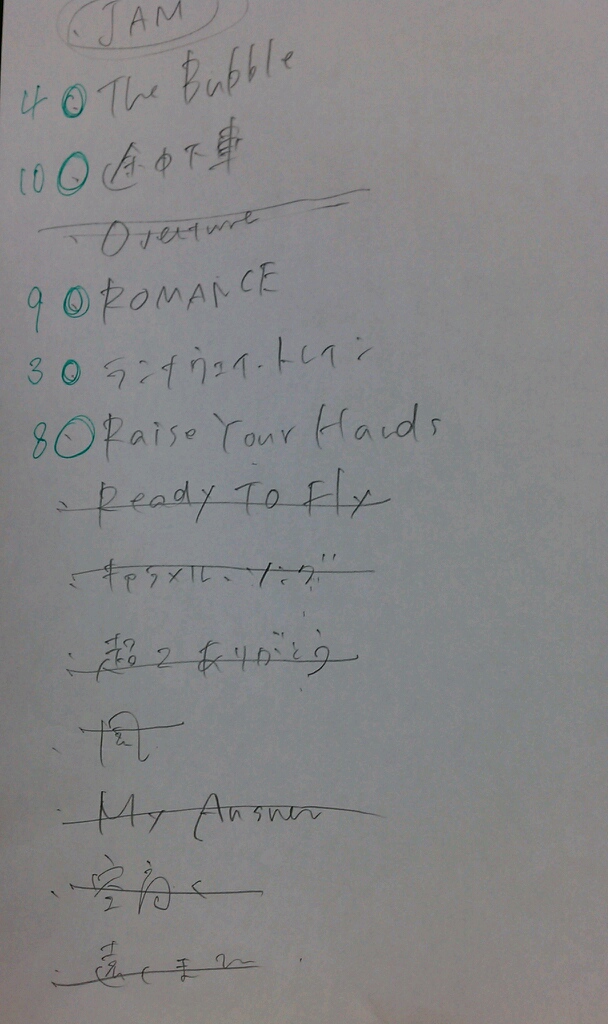 ・JAM
4 The Bubble
10 途中下車
・Overture
9 ROMANCE
3 ランナウェイ・トレイン
8 Raise Your Hands
・Ready To Fly
・キャラメル・ソング
・超2ありがとう
・風
・My Answer
・空高く
・遠くまで